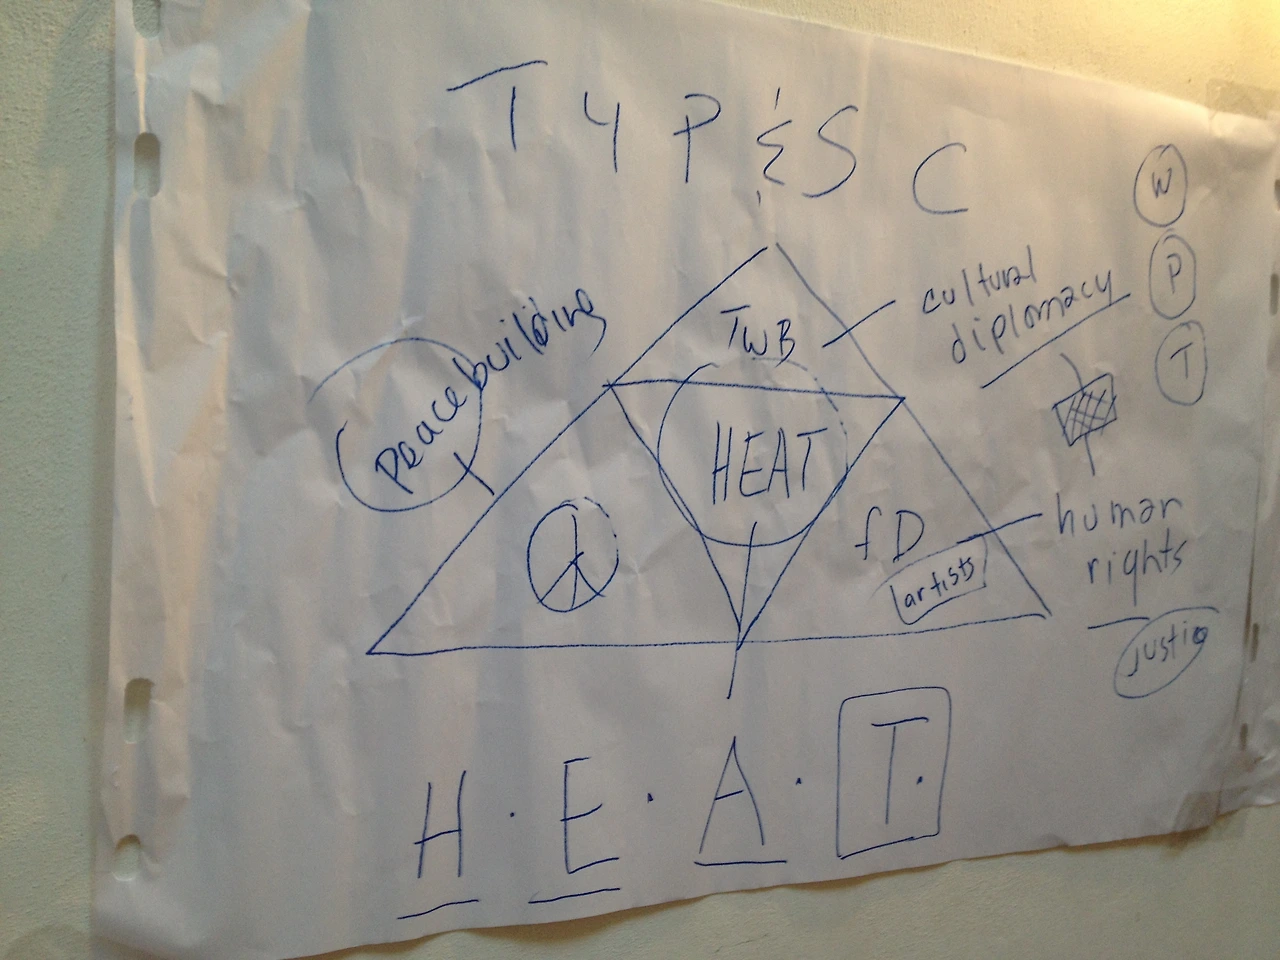 T Y P & S C
W
P
T
cultural
diplomacy
Peacebuilding
TWB
HEAT
fD
artists
human
rights
H . E . A . T .